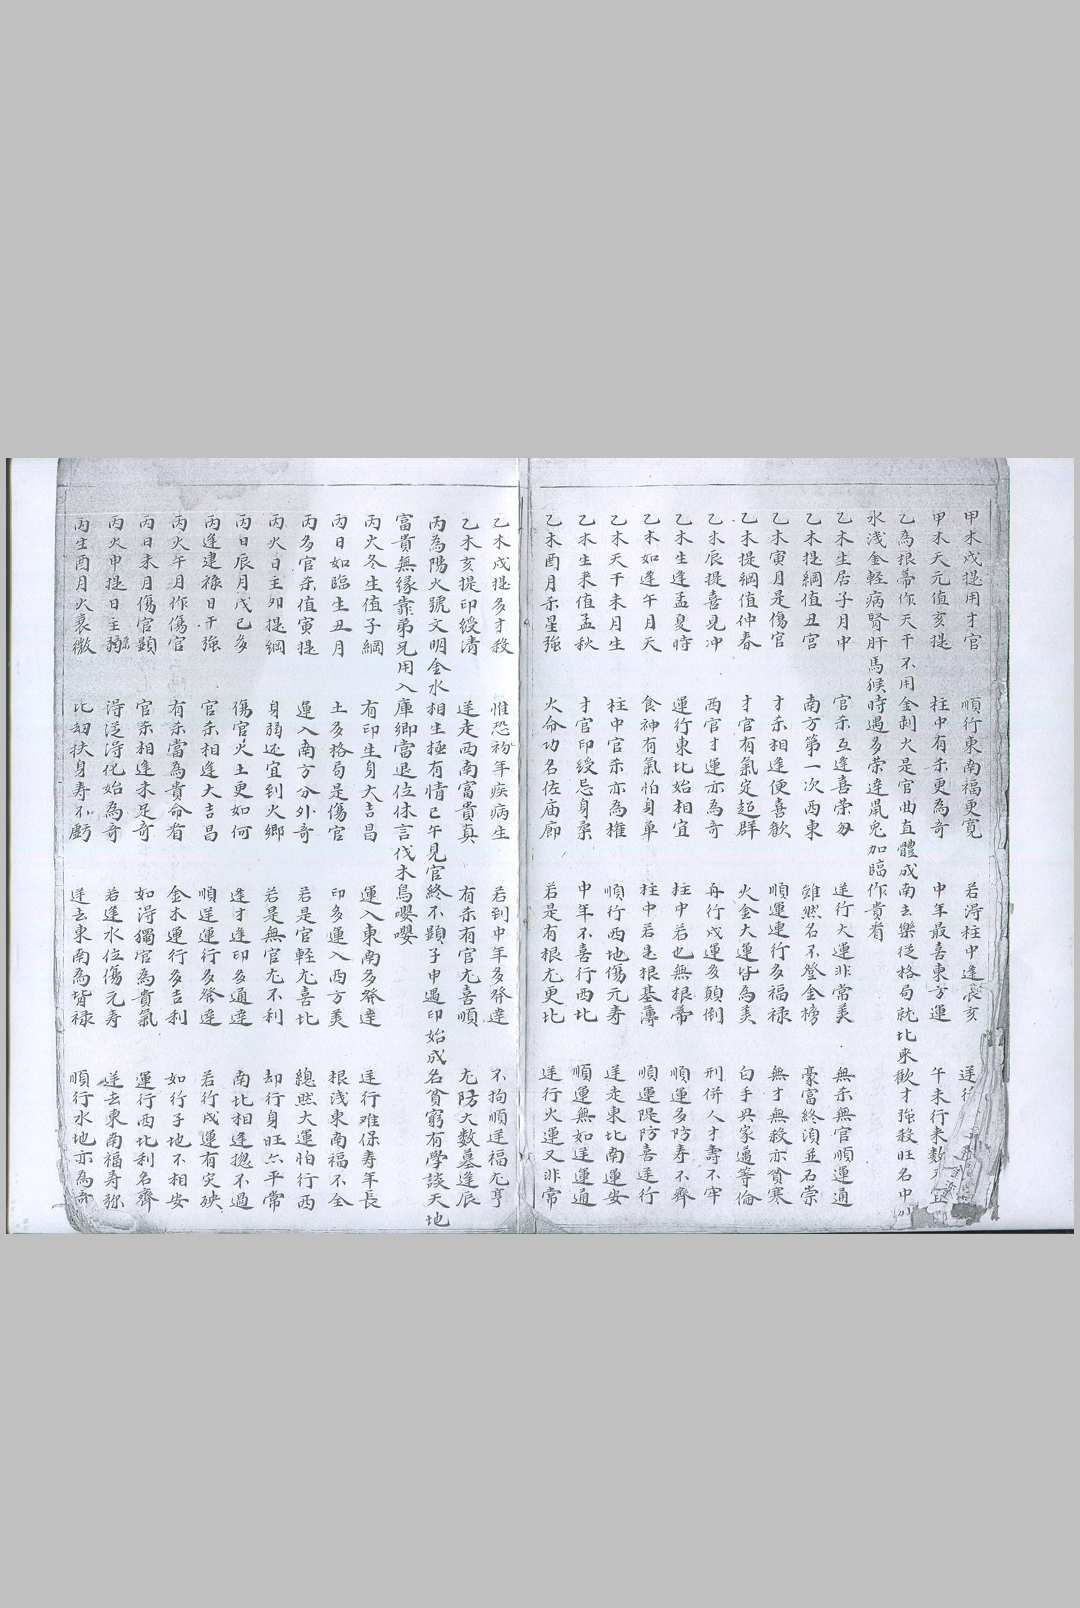 甲木戍提用才官 順行東南福更寬 若淂柱中逢辰亥 逆行
甲木天元值亥提 柱中有杀更為奇 中年最喜東方運 午未行来数
乙為根蒂作天干不用金剥火是官曲直體成南去樂從格局就北来歡才强殺旺名中
水淺金輕病腎肝馬猴時遇多荣逹鼠兎加臨作貴看
乙木生居子月中 官杀互逢喜荣 逆行大運非常美 無杀無官順運通
乙木提綱值丑宫 南方第一次西東 雖然名不登金榜 豪富終須並石崇
乙木寅月是傷官 才杀相逢便喜歡 順運運行多福禄 無才無殺亦貧寒
乙木提綱值仲春 才官有氣定超群 火金大運皆為美 白手興家邁等倫
乙木辰提喜見冲 西官才運亦為奇 再行戍運多顛倒 刑併人才壽不牢
乙木生逢孟夏時 運行東北始相宜 柱中若也無根蒂 順運多防寿不齊
乙木如逢午月天 食神有氣怕身單 柱中若是根基薄 順運隄防喜逆行
乙木天干未月生 柱中官杀亦為權 順行西地傷元寿 逆走東北南運安
乙木生来值孟秋 才官印綬忌身柔 中年不喜行西北 順運無如逆運通
乙木酉月杀星强 火命功名佐庙廊 若是有根尤更比 逆行火運又非常
乙木戍提多才殺 惟恐初年疾病生 若到中年多發達 不拘順逆福尤亨
乙木亥提印綬清 逆走西南富貴真 有杀有官尤喜順 尤防大数墓逢辰
丙為陽火號文明金水相生極有情已午見官終不顕子申遇印始成名貧窮有學談天地
富貴無缘靠弟兄用入庫卿當退位休言伐木鳥嚶嚶
丙火冬生值子綱 有印生身大吉昌 運入東南多發達 逆行难保寿年長
丙日如臨生丑月 土多格局是傷官 印多運入西方美 根浅東南福不全
丙多官杀值寅提 運入南方分外奇 若是官輕尤喜比 總然大運怕行西
丙火日主卯提綱 身弱还宜到火鄉 若是無官尤不利 却行身旺亦平常
丙日辰月戊己多 傷官火土更如何 逢才逢印多通逹 南北相逢揔不過
丙逢建祿日干强 官杀相逢大吉昌 順逆運行多發逹 若行戍運有灾殃
丙火午月作傷官 有杀當為貴命看 金木運行多吉利 如行子地不相安
丙日未月傷官顕 官杀相逢未足奇 如淂獨官為貴氣 運行西北利名齊
丙火申提日主弱 淂従淂化始為奇 若逢水位傷元寿 逆去東南福寿弥
丙生酉月火衰微 比刼扶身寿不虧 逆去東南為背禄 順行水地亦為奇